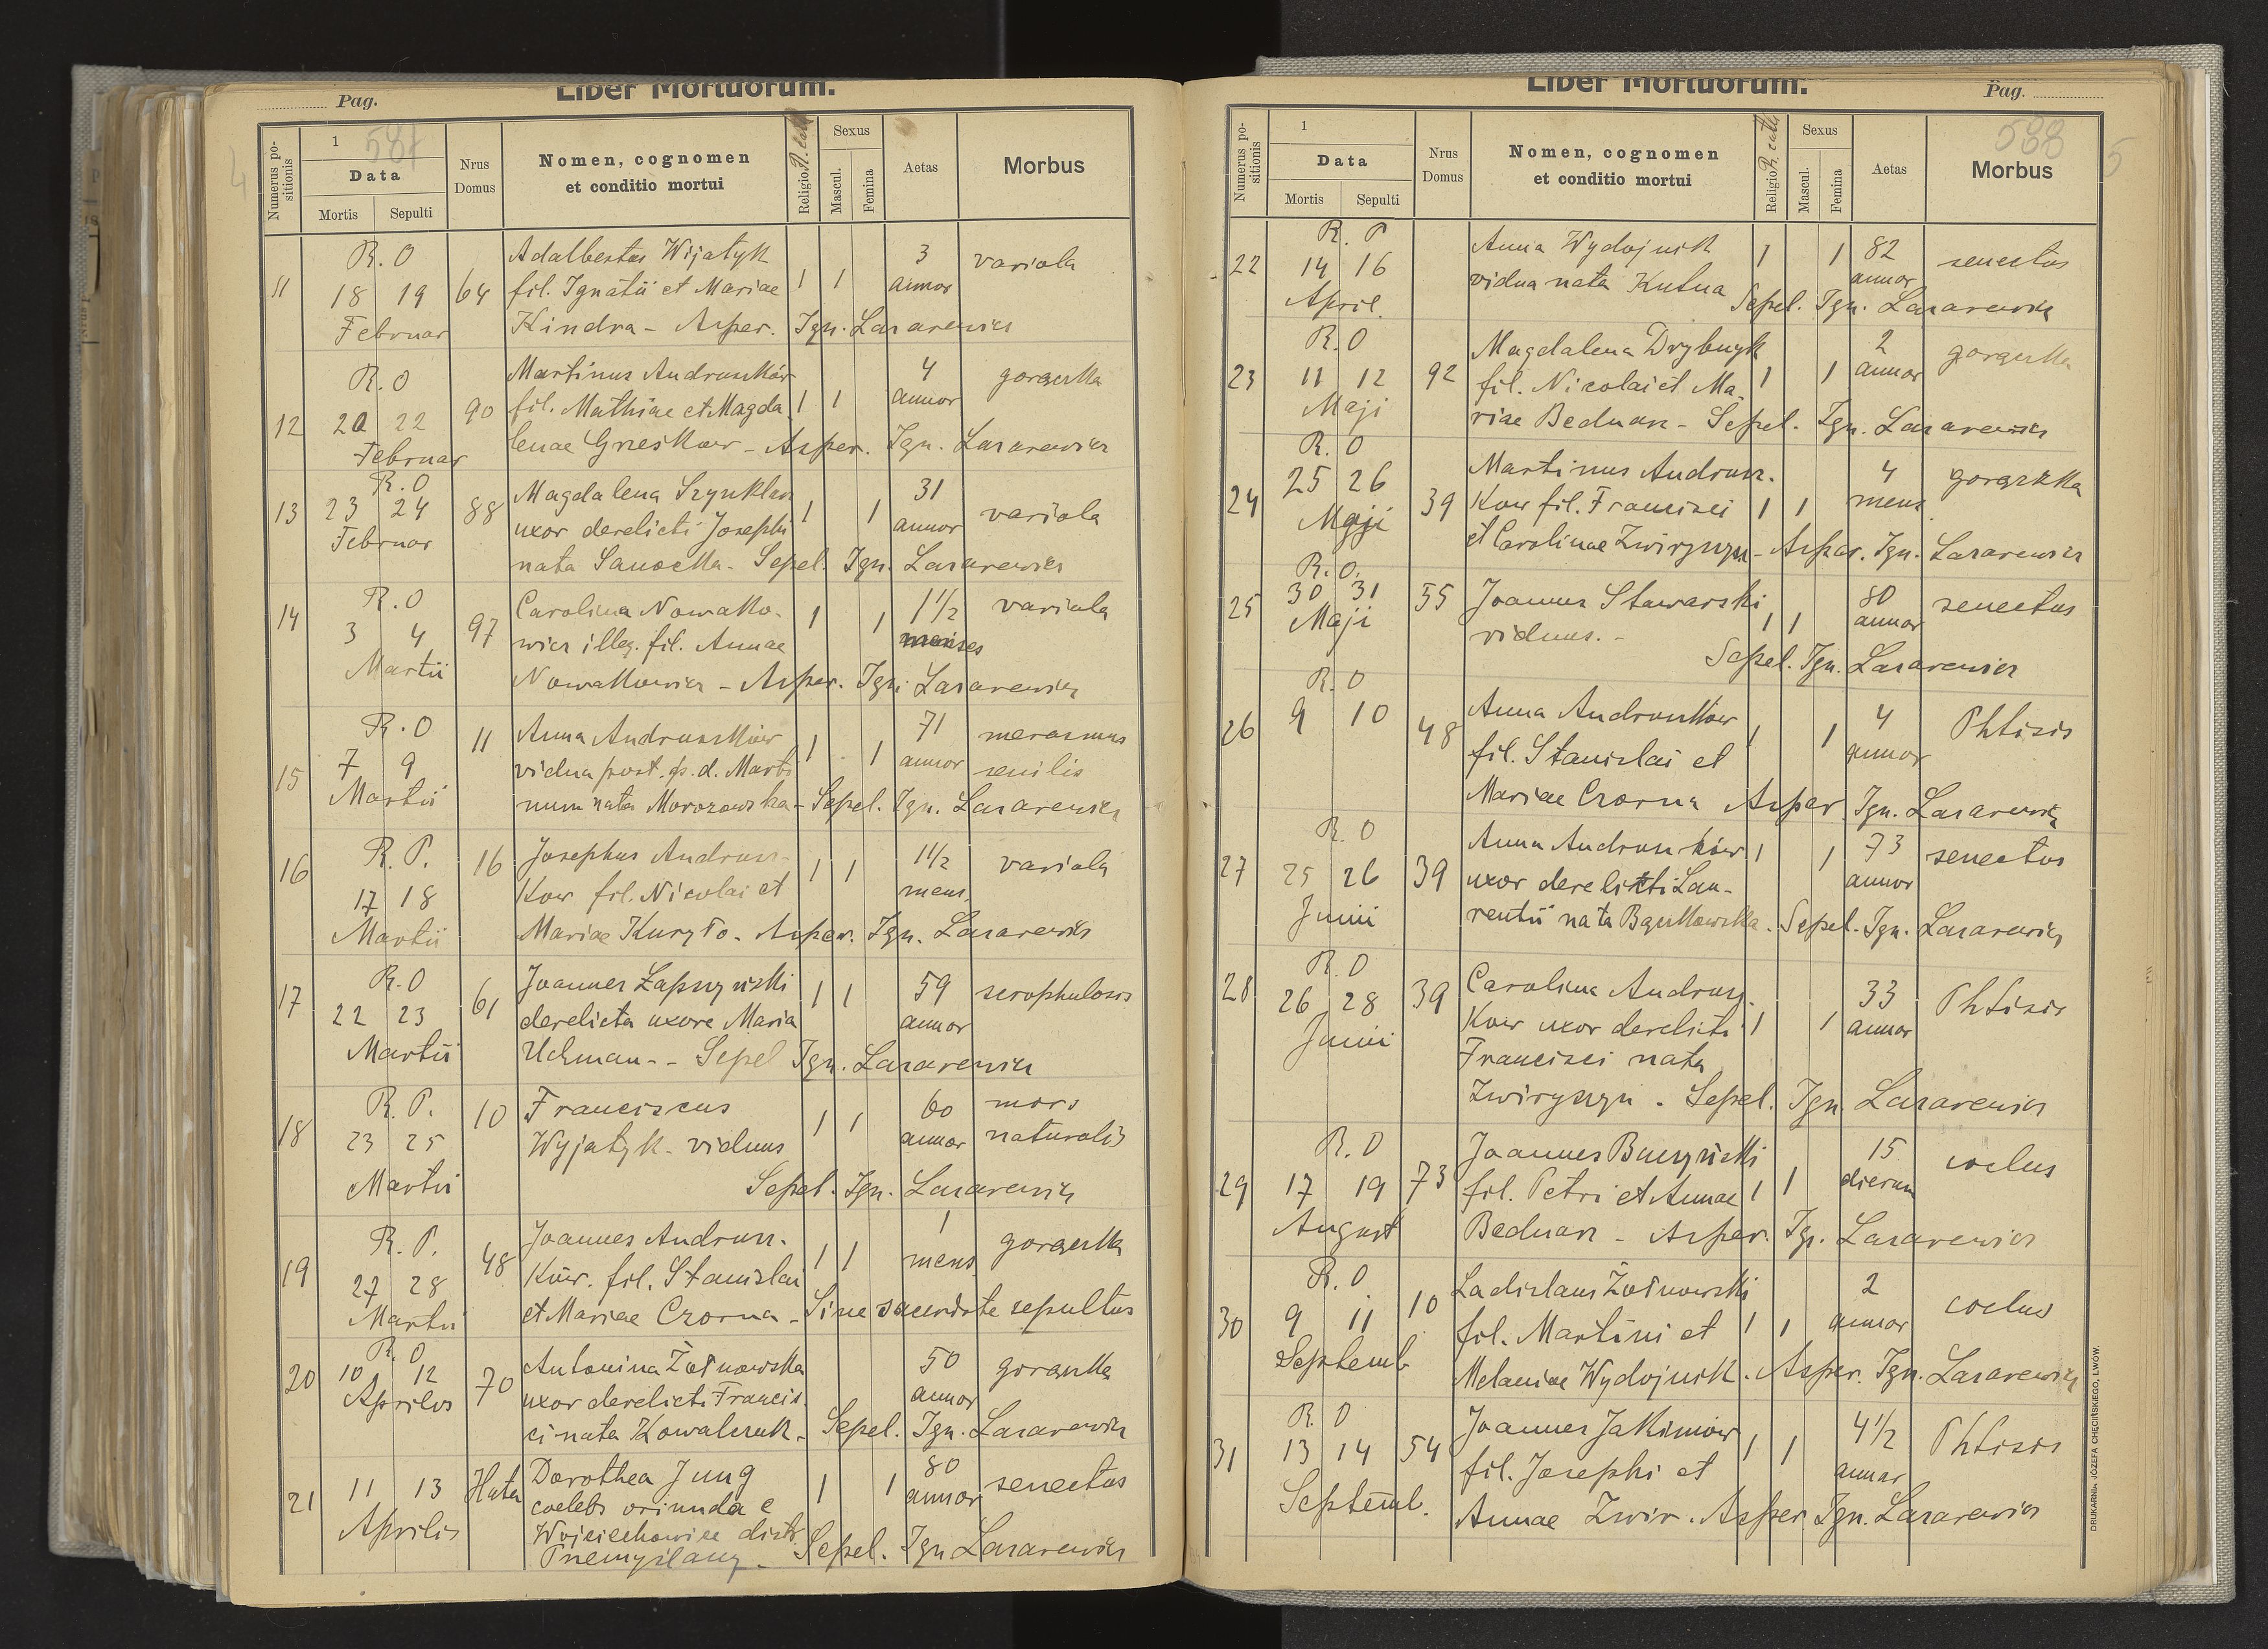 Pag.
Liber Mortuorum.
4
Numerus positionis
1
587
Data
Mortis
Sepulti
Nrus Domus
Nomen, cognomen
et conditio mortui
Religio R. cath
Sexus
Mascul.
Femina
Aetas
Morbus
R. O
11 18 19 64
Februar
Adalbertus Wijatyk
fil. Ignatii et Mariae 1 1 3 annor variola
Kindra - Asper. Ign. Lazarewicz
R. O
12 20 22 90
Februar
Martinus Andruszków
fil. Mathiae et Magda 1 1 4 annor gorączka
lenae Grieskow - Asper. Ign. Lazarewicz
R. O
13 23 24 88
Februar
Magdalena Szynklar
uxor derelicti Josephi 1 1 31 annor variola
nata Sanocka - Sepel. Ign. Lazarewicz
R. O
14 3 4 97
Martii
Carolina Nowako-
wicz illeg. fil. Annae 1 1 1 1/2 menses variola
Nowakowicz - Asper. Ign. Lazarewicz
R. O
15 7 9 11
Martii
Anna Andruszków
vidua post. p. d. Marti 1 1 71 annor marasmus senilis
num nata Morozowska - Sepel. Ign. Lazarewicz
R. P.
16 17 18 16
Martii
Josephus Andrusz-
kow fil. Nicolai et 1 1 1 1/2 mens. variola
Mariae Kuryło - Asper. Ign. Lazarewicz
R. O
17 22 23 61
Martii
Joannes Łapszyński
derelicta uxore Maria 1 1 59 annor scrophulosis
Uchman - - Sepel Ign. Lazarewicz
R. P.
18 23 25 10
Martii
Franciscus
Wyjatyk - viduus 1 1 60 annor mors naturalis
Sepel. Ign. Lazarewicz
R. P.
19 27 28 48
Martii
Joannes Andrusz-
ków. fil. Stanislai 1 1 1 mens gorączka
et Mariae Czorna - Sine sacerdote sepultus
R. O
20 10 12 70
Aprilis
Antonina Żołnowska
uxor derelicti Francis- 50 annor gorączka
ci nata Kowalczuk - Sepel. Ign. Lazarewicz
21 11 13 Huta
Aprilis
Dorothea Jung
coelebs oriunda e 1 1 80 annor senectus
Wojciechowice distr.
Przemyślany - Sepel. Ign Lazarewicz
Liber Mortuorum.
Pag.
5
Numerus positionis
1
Data
Mortis
Sepulti
Nrus Domus
Nomen, cognomen
et conditio mortui
Religio R. cath
Sexus
Mascul.
Femina
Aetas
588
Morbus
R. P
22 14 16
April.
Anna Wydojnik 1 1 82 annor senectus
vidua nata Kutna
Sepel. Ign. Lazarewicz
R. O
23 11 12 92
Maji
Magdalena Drybnyk
fil. Nicolai et Ma- 1 1 2 annor gorączka
riae Bednarz - Sepel. Ign. Lazarewicz
R. O
24 25 26 39
Maji
Martinus Andrusz-
kow fil. Francisci 1 1 4 mens gorączka
et Carolinae Zwirzyszyn - Asper. Ign. Lazarewicz
R. O.
25 30 31 55
Maji
Joannes Stawarski
viduus. - 1 1 80 annor senectus
Sepel. Ign. Lazarewicz
R. O
26 9 10 48
Anna Andruszków
fil. Stanislai et 1 1 4 annor Phtisis
Mariae Czorna Asper Ign. Lazarewicz
R. O
27 25 26 39
Junii
Anna Andruszków 1 1 73 annor senectus
uxor derelicti Lau-
rentii nata Bączkowska. Sepel. Ign. Lazarewicz
R. O
28 26 28 39
Junii
Carolina Andrusz-
kow uxor derelicti 1 1 33 annor Phtisis
Francisci nata
Zwirzyszyn - Sepel. Ign Lazarewicz
R. O
29 17 19 73
August
Joannes Buczyński
fil. Petri et Annae 1 1 15 dierum coclus
Bednarz - Asper. Ign. Lazarewicz
R. O.
30 9 11 10
Septemb
Ladislaus Żołnowski
fil. Martini et 1 1 2 annor coclus
Melaniae Wydojnik. Asper. Ign. Lazarewicz
R. O
31 13 14 54
Septemb.
Joannes Jakimów
fil. Josephi et 1 1 4 1/2 annor Phtisis
Annae Zwir. Asper Ign. Lazarewicz
DRUKARNIA JÓZEFA CHĘCIŃSKIEGO, LWÓW.